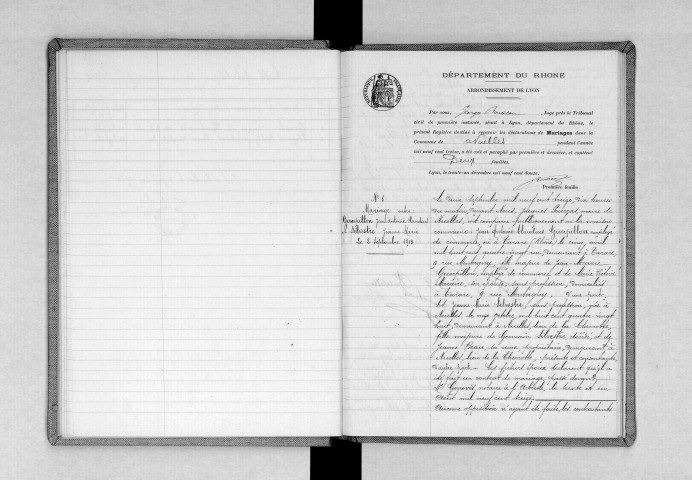 DÉPARTEMENT DU RHONE
ARRONDISSEMENT DE LYON
Par nous, Georges Juge près le Tribunal
civil de première instance, séant à Lyon, département du Rhône, le
présent Registre destiné à recevoir les déclarations de Mariages dans la
Commune de Nuelles pendant l'année
mil neuf cent treize, a été coté et paraphé par première et dernière, et contient
Deux feuilles.
Lyon, le trente-un décembre mil neuf cent douze.
Première feuille
N° 6
Mariage entre
Guerpillon Jean Antoine Claudius
& Silvestre Jeanne Marie
le 2 Septembre 1913
Le deux Septembre mil neuf cent treize, dix heures
du matin, devant Nous, Jacques maire de
Nuelles, ont comparu publiquement en la maison
commune : Jean Antoine Claudius Guerpillon employé
de commerce, né à Tarare, (Rhône) le cinq avril
mil huit cent quatre vingt demeurant à Tarare,
9 rue fils majeur de Jean-Marie
Guerpillon, employé de commerce et de Marie
son épouse, sans profession, domiciliés
à Tarare, 9 rue d'une part,
Et Jeanne Marie Silvestre, sans profession, née à
Nuelles le onze octobre mil huit cent quatre vingt
huit, demeurant à Nuelles, lieu de la
fille majeure de Germain Silvestre, décédé, et de
Jeanne sa veuve, propriétaire, demeurant à
Nuelles lieu de la présente et consentante,
d'autre part. — Les futurs Époux déclarent qu'il a
été fait un contrat de mariage passé devant
Me notaire à l'Arbresle, le trente et un
Août mil neuf cent treize
Aucune opposition n'ayant été faite, les contractants